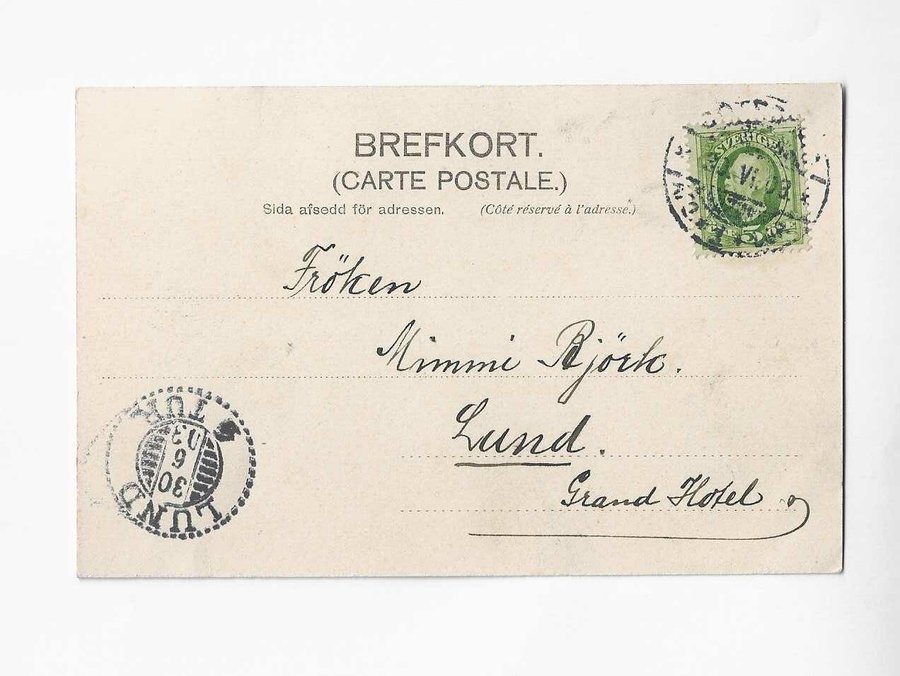 BREFKORT.
(CARTE POSTALE.)
Sida afsedd för adressen. (Côté réservé à l'adresse.)
SVERIGE
5
Fröken
Mimmi Björk.
Lund.
Grand Hotel
LUND
30
6
03
6 TUR